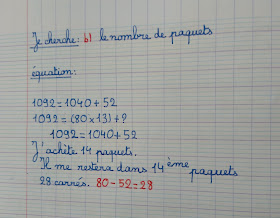 Je cherche: b) le nombre de paquets
équation:
1092 = 1040 + 52
1092 = (80 x 13) + ?
1092 = 1040 + 52
J'achète 14 paquets.
Il me restera dans 14ème paquets
28 carrés. 80 - 52 = 28